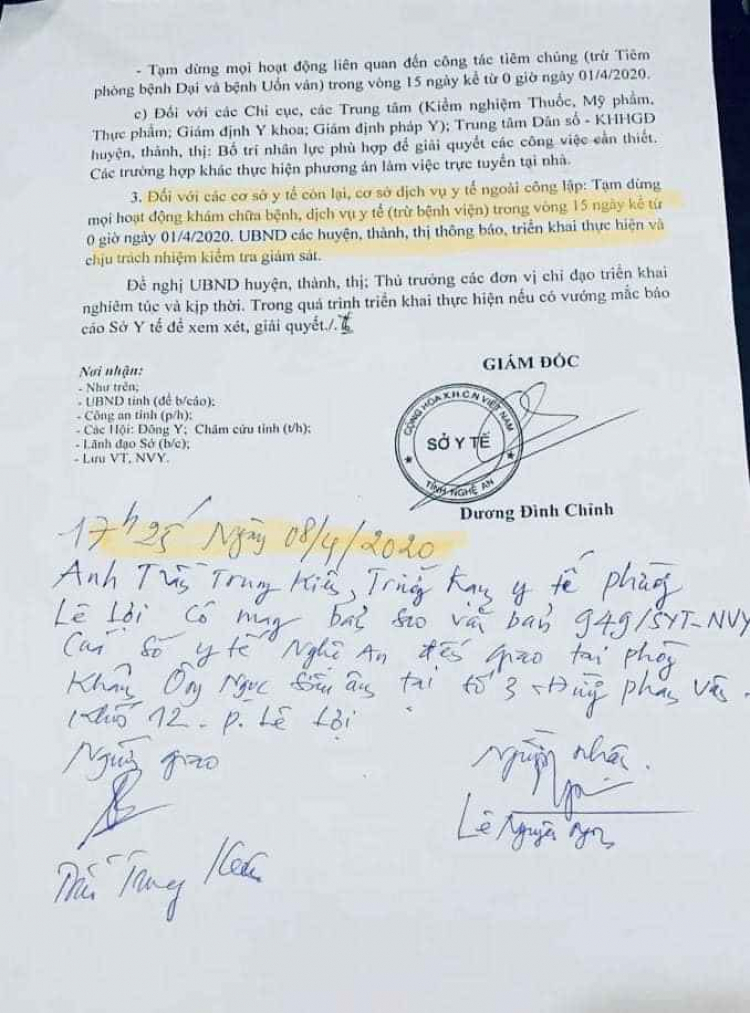 - Tạm dừng mọi hoạt động liên quan đến công tác tiêm chủng (trừ Tiêm
phòng bệnh Dại và bệnh Uốn ván) trong vòng 15 ngày kể từ 0 giờ ngày 01/4/2020.
c) Đối với các Chi cục, các Trung tâm (Kiểm nghiệm Thuốc, Mỹ phẩm,
Thực phẩm; Giám định Y khoa; Giám định pháp Y); Trung tâm Dân số - KHHGD
huyện, thành, thị: Bố trí nhân lực phù hợp để giải quyết các công việc cần thiết.
Các trường hợp khác thực hiện phương án làm việc trực tuyến tại nhà.
3. Đối với các cơ sở y tế còn lại, cơ sở dịch vụ y tế ngoài công lập: Tạm dừng
mọi hoạt động khám chữa bệnh, dịch vụ y tế (trừ bệnh viện) trong vòng 15 ngày kể từ
0 giờ ngày 01/4/2020. UBND các huyện, thành, thị thông báo, triển khai thực hiện và
chịu trách nhiệm kiểm tra giám sát.
Đề nghị UBND huyện, thành, thị; Thủ trưởng các đơn vị chỉ đạo triển khai
nghiêm túc và kịp thời. Trong quá trình triển khai thực hiện nếu có vướng mắc báo
cáo Sở Y tế để xem xét, giải quyết./.
Nơi nhận:
- Như trên;
- UBND tỉnh (để b/cáo);
- Công an tỉnh (p/h);
- Các Hội: Đông Y; Châm cứu tỉnh (t/h);
- Lãnh đạo Sở (b/c);
- Lưu VT, NVY.
GIÁM ĐỐC
CỘNG HÒA X.H.C.N VIỆT NAM
SỞ Y TẾ
TỈNH NGHỆ AN
Dương Đình Chỉnh
17h 25' Ngày 08/4/2020
Anh Trần Trung Kiên, Trưởng trạm y tế phường
Lê Lợi có mang bản sao văn bản 949/SYT-NVY
Của Sở y tế Nghệ An đến giao tại phòng
Khám Ông Ngọc tại tổ 3
Khối 12 - P. Lê Lợi
Người giao
Người nhận.
Lê Nguyên Ngọc
Trần Trung Kiên